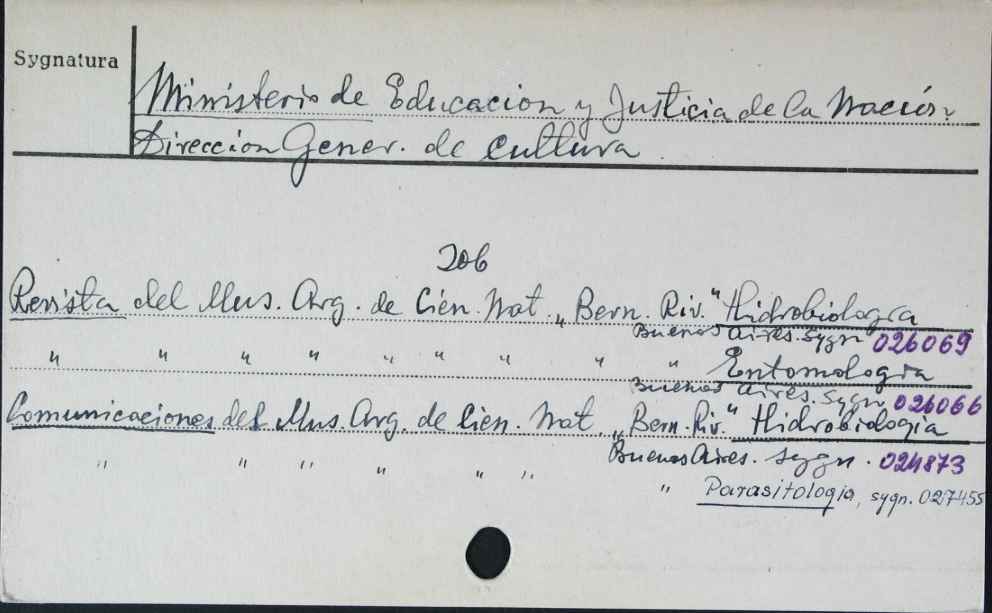 Sygnatura
Ministerio de Educacion y Justicia de la Nación
Dirección Gener. de cultura
Zob
Revista del Mus. Arg. de Cien. Nat. „Bern. Riv.” Hidrobiologia
Buenos Aires. Sygn 026069
" " " " " " " " " Entomologia
Buenos Aires. Sygn 026066
Comunicaciones del Mus. Arg. de Cien. Nat „Bern. Riv.” Hidrobiologia
Buenos Aires. sygn. 024873
" " " " " " " Parasitologia, sygn. 027455